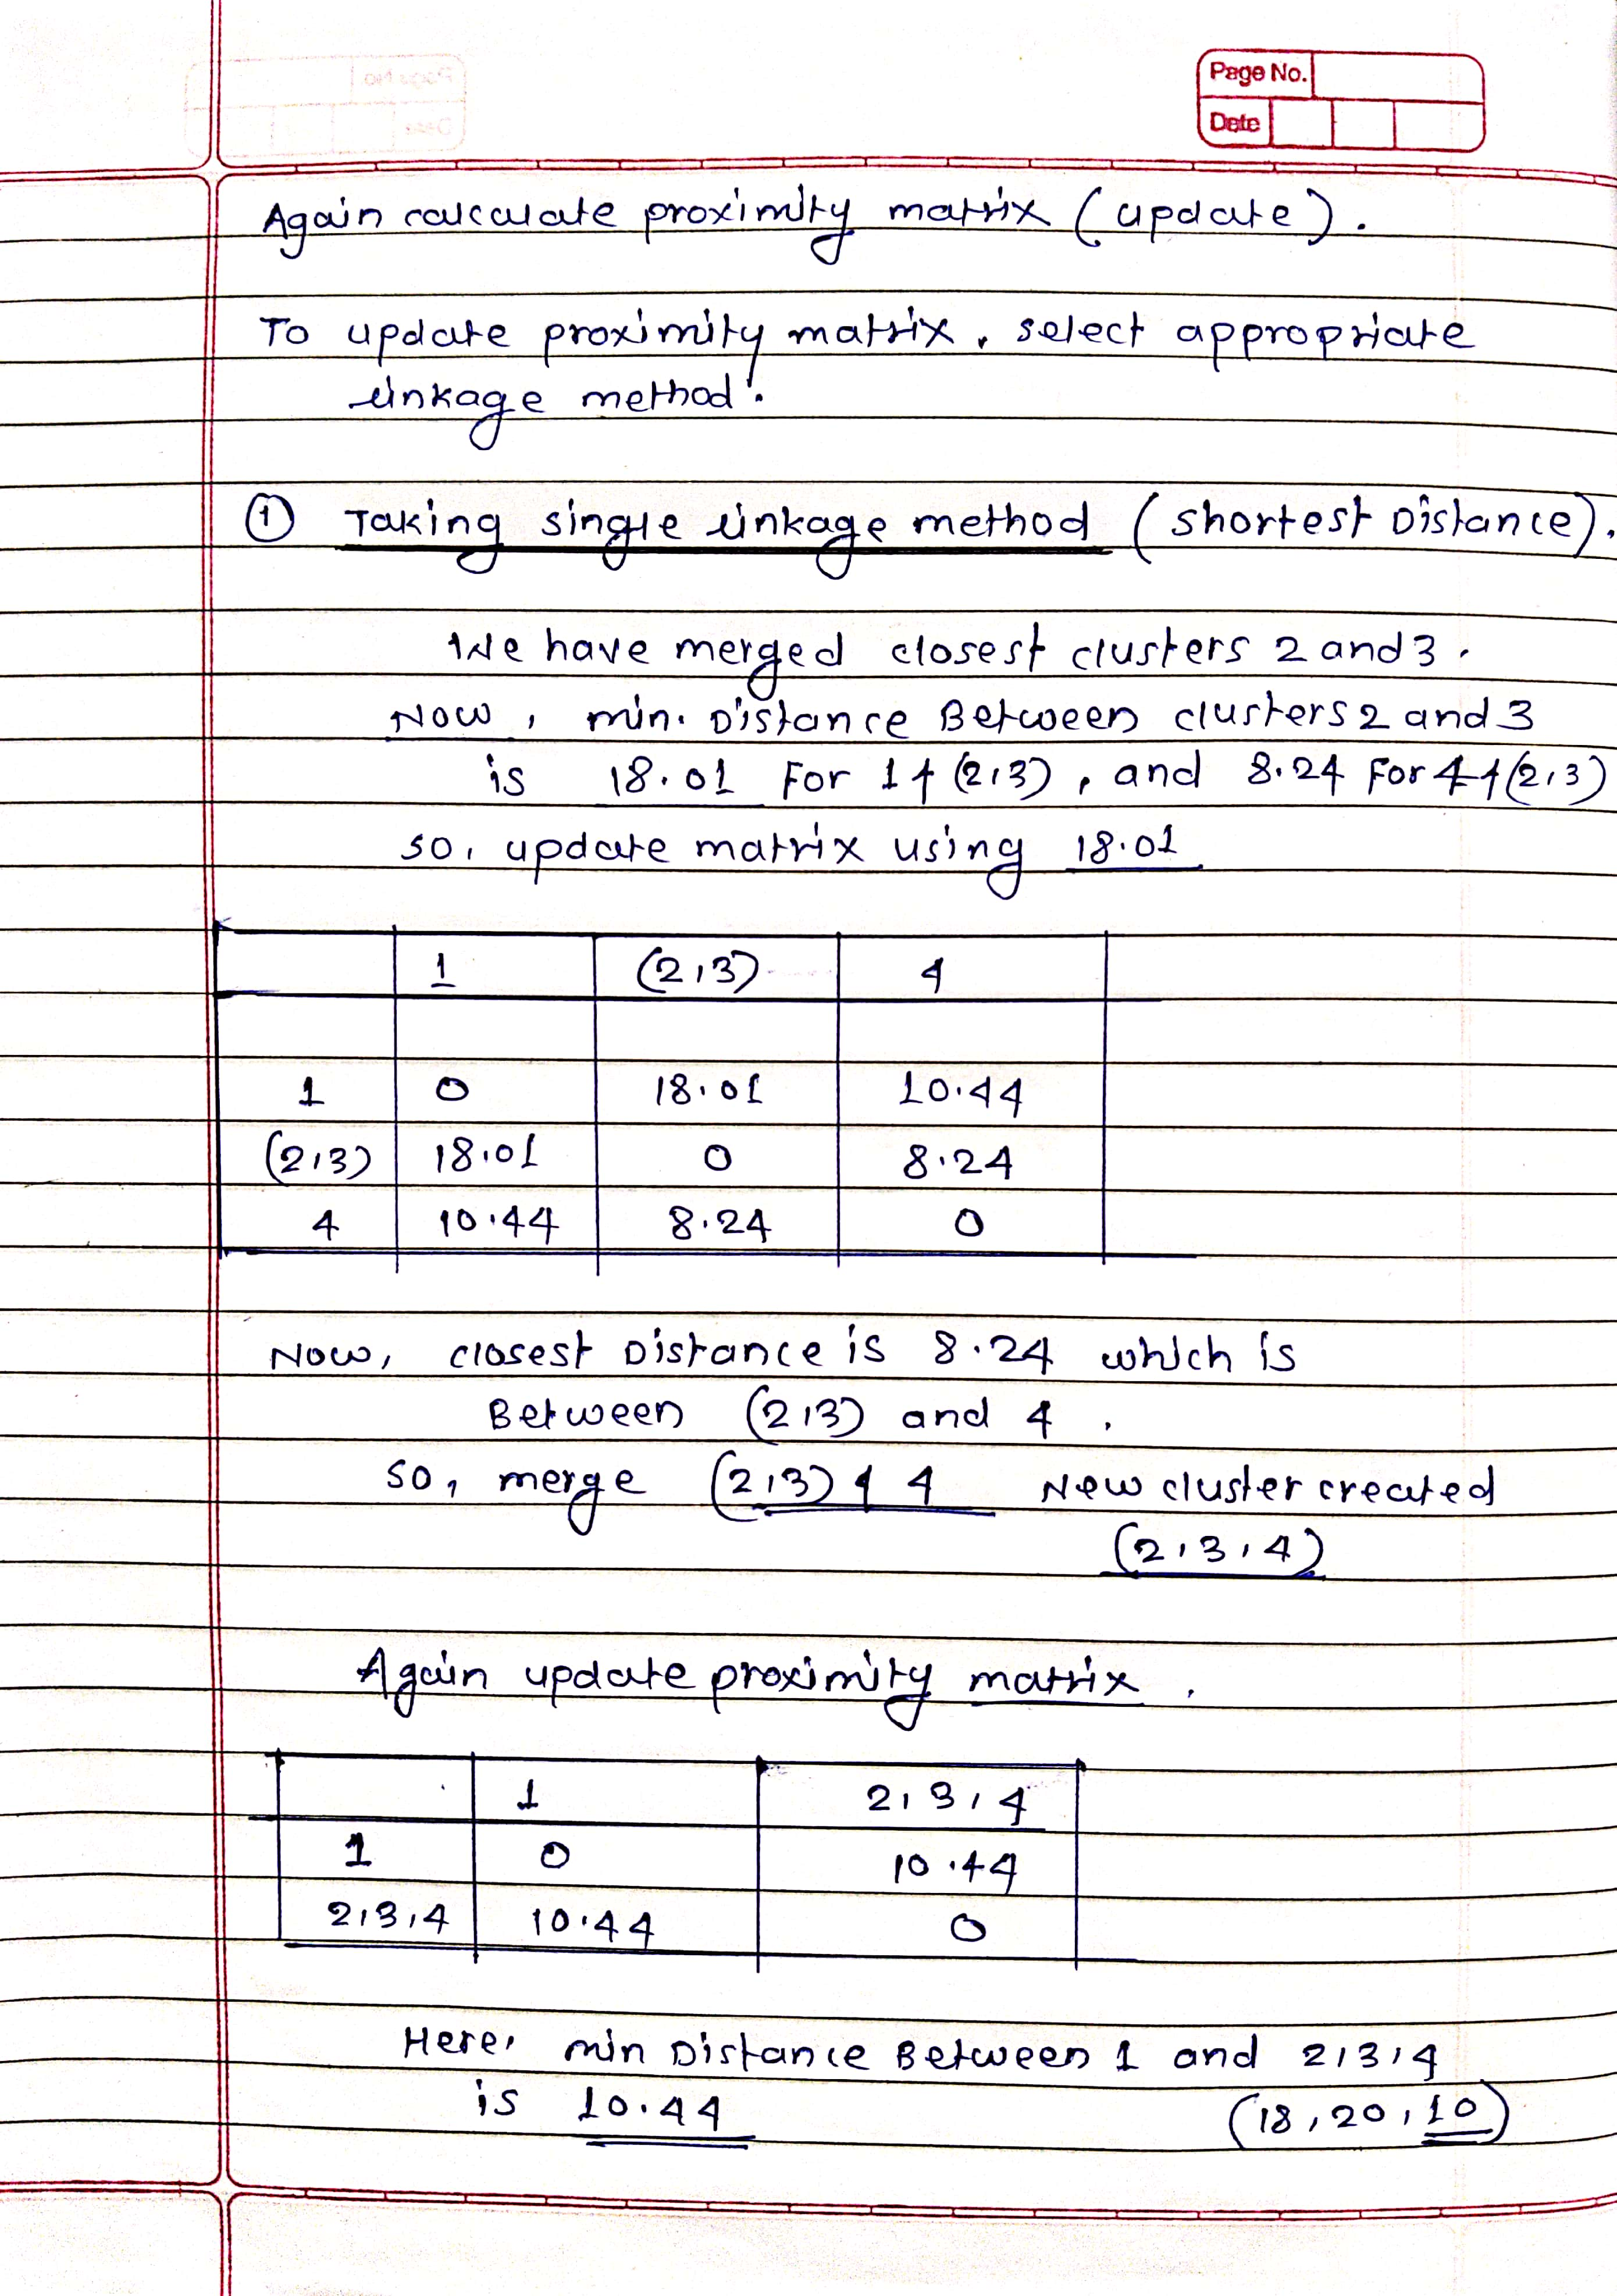 Page No.
Date
Again calculate proximity matrix (update).
To update proximity matrix, select appropriate
linkage method.
① Taking single linkage method (shortest Distance).
We have merged closest clusters 2 and 3.
Now, min. Distance Between clusters 2 and 3
is 18.01 For 1 & (2,3), and 8.24 For 4 & (2,3)
so, update matrix using 18.01
1 (2,3) 4
1 0 18.01 10.44
(2,3) 18.01 0 8.24
4 10.44 8.24 0
Now, closest Distance is 8.24 which is
Between (2,3) and 4.
so, merge (2,3) & 4 New cluster created
(2,3,4)
Again update proximity matrix.
1 2,3,4
1 0 10.44
2,3,4 10.44 0
Here, min Distance Between 1 and 2,3,4
is 10.44 (18,20,10)